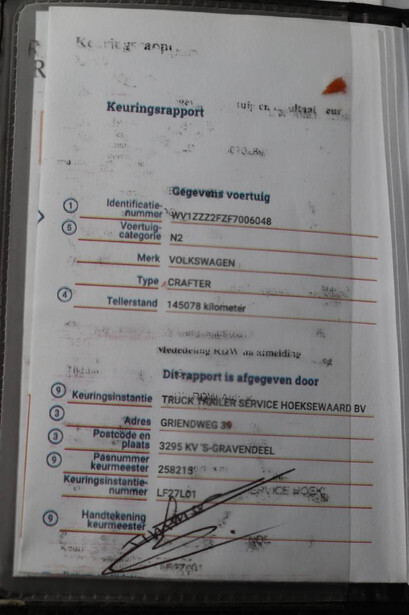 Keuringsrapport
Keuringsrapport
Gegevens voertuig
1 Identificatie-
nummer WV1ZZZ2FZF7006048
5 Voertuig-
categorie N2
Merk VOLKSWAGEN
Type CRAFTER
4 Tellerstand 145078 kilometer
Mededeling RDW na afmelding
Dit rapport is afgegeven door
9 Keuringsinstantie TRUCK TRAILER SERVICE HOEKSEWAARD BV
3 Adres GRIENDWEG 39
3 Postcode en
plaats 3295 KV 'S-GRAVENDEEL
9 Pasnummer
keurmeester 258213
Keuringsinstantie-
nummer LF27L01
SERVICE HOEK
9 Handtekening
keurmeester